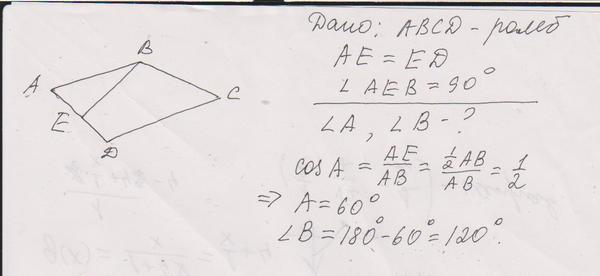 Дано: ABCD - ромб
AE = ED
∠AEB = 90°
∠A, ∠B - ?
cos A = AE/AB = ½AB/AB = 1/2
⇒ A = 60°
∠B = 180° - 60° = 120°.
A
B
C
E
D